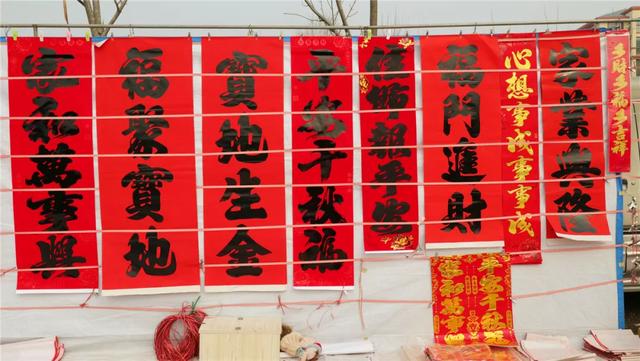 家和萬事興
福聚寶地
寶地生金
平安千秋福
報平安
福門進財
心想事成事事成
家業興隆
多財多福多吉祥
家和萬事興
平安千秋福